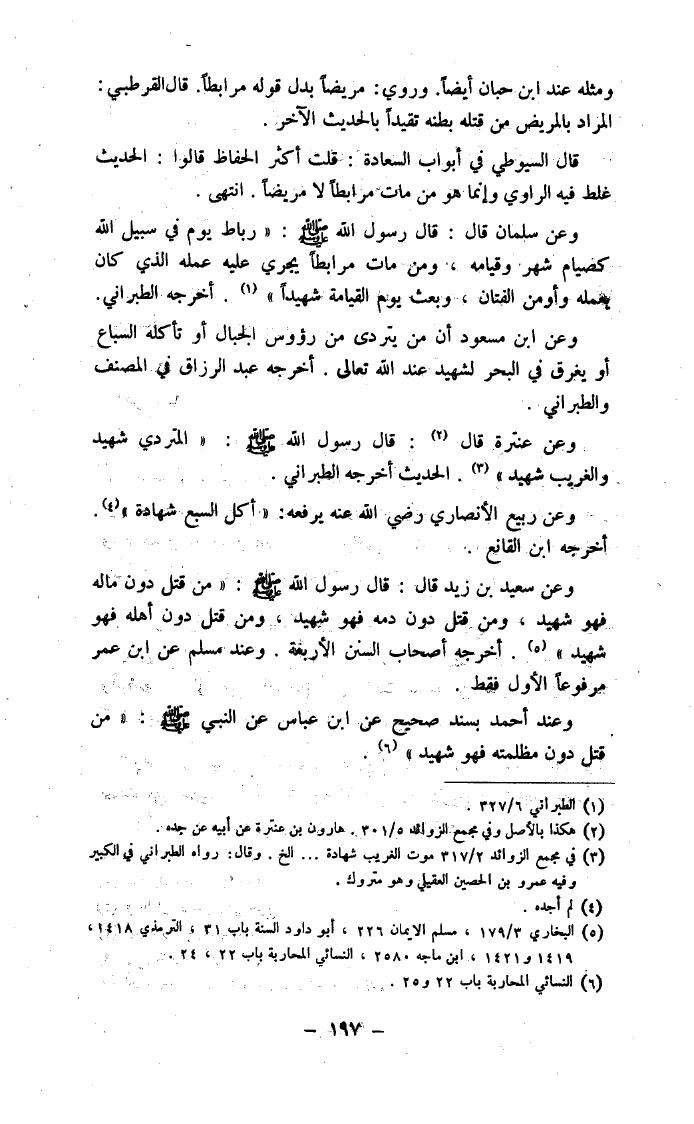 ومثله عند ابن حبان أيضاً. وروي: مريضاً بدل قوله مرابطاً. قال القرطبي:
المراد بالمريض من قتله بطنه تقيداً بالحديث الآخر .
قال السيوطي في أبواب السعادة : قلت أكثر الحفاظ قالوا : الحديث
غلط فيه الراوي وإنما هو من مات مرابطاً لا مريضاً . انتهى .
وعن سلمان قال : قال رسول الله ﷺ : « رباط يوم في سبيل الله
كصيام شهر وقيامه ، ومن مات مرابطاً يجري عليه عمله الذي كان
يعمله وأومن الفتان ، وبعث يوم القيامة شهيداً » (١) . أخرجه الطبراني.
وعن ابن مسعود أن من يتردى من رؤوس الجبال أو تأكله السباع
أو يغرق في البحر لشهيد عند الله تعالى . أخرجه عبد الرزاق في المصنف
والطبراني .
وعن عنترة قال (٢) : قال رسول الله ﷺ : « المتردي شهيد
والغريب شهيد » (٣) . الحديث أخرجه الطبراني .
وعن ربيع الأنصاري رضي الله عنه يرفعه: « أكل السبع شهادة »(٤).
أخرجه ابن القانع .
وعن سعيد بن زيد قال : قال رسول الله ﷺ : « من قتل دون ماله
فهو شهيد ، ومن قتل دون دمه فهو شهيد ، ومن قتل دون أهله فهو
شهيد » (٥) . أخرجه أصحاب السنن الأربعة . وعند مسلم عن ابن عمر
مرفوعاً الأول فقط .
وعند أحمد بسند صحيح عن ابن عباس عن النبي ﷺ : « من
قتل دون مظلمته فهو شهيد » (٦) .
(١) الطبراني ٣٢٧/٦ .
(٢) هكذا بالأصل وفي مجمع الزوائد ٣٠١/٥ . هارون بن عنترة عن أبيه عن جده .
(٣) في مجمع الزوائد ٣١٧/٢ موت الغريب شهادة ... الخ . وقال: رواه الطبراني في الكبير
وفيه عمرو بن الحصين العقيلي وهو متروك .
(٤) لم أجده .
(٥) البخاري ١٧٩/٣ ، مسلم الايمان ٢٢٦ ، أبو داود السنة باب ٣١ ، الترمذي ١٤١٨ ،
١٤١٩ و١٤٢١ ، ابن ماجه ٢٥٨٠ ، النسائي المحاربة باب ٢٢ ، ٢٤ .
(٦) النسائي المحاربة باب ٢٢ و٢٥ .
– ١٩٧ –